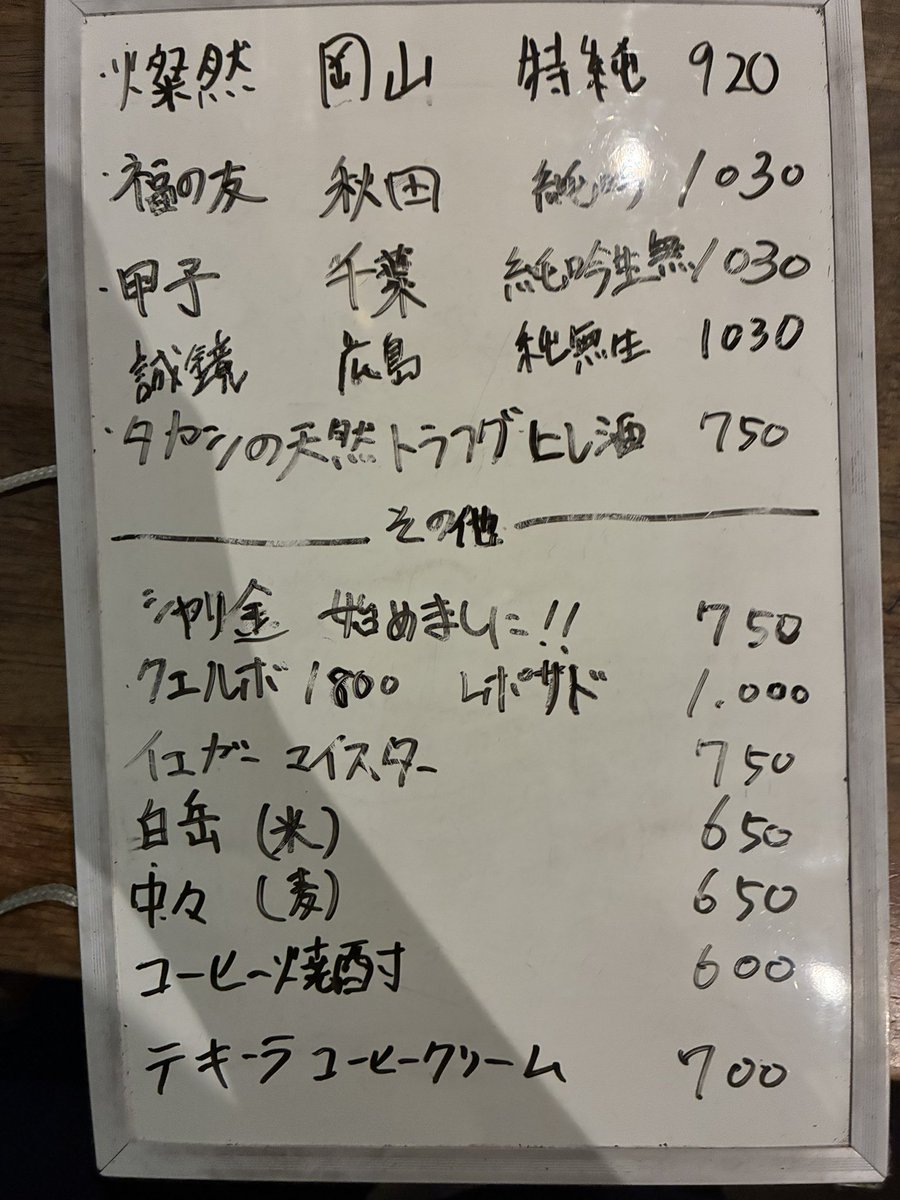 ・燦然 岡山 特純 920
・福の友 秋田 純吟 1030
・甲子 千葉 純吟生無 1030
誠鏡 広島 純無生 1030
・タカシの天然トラフグヒレ酒 750
その他
シャリ金 始めました!! 750
クエルボ 1800 レポサド 1.000
イエガーマイスター 750
白岳 (米) 650
中々 (麦) 650
コーヒー焼酎 600
テキーラコーヒークリーム 700